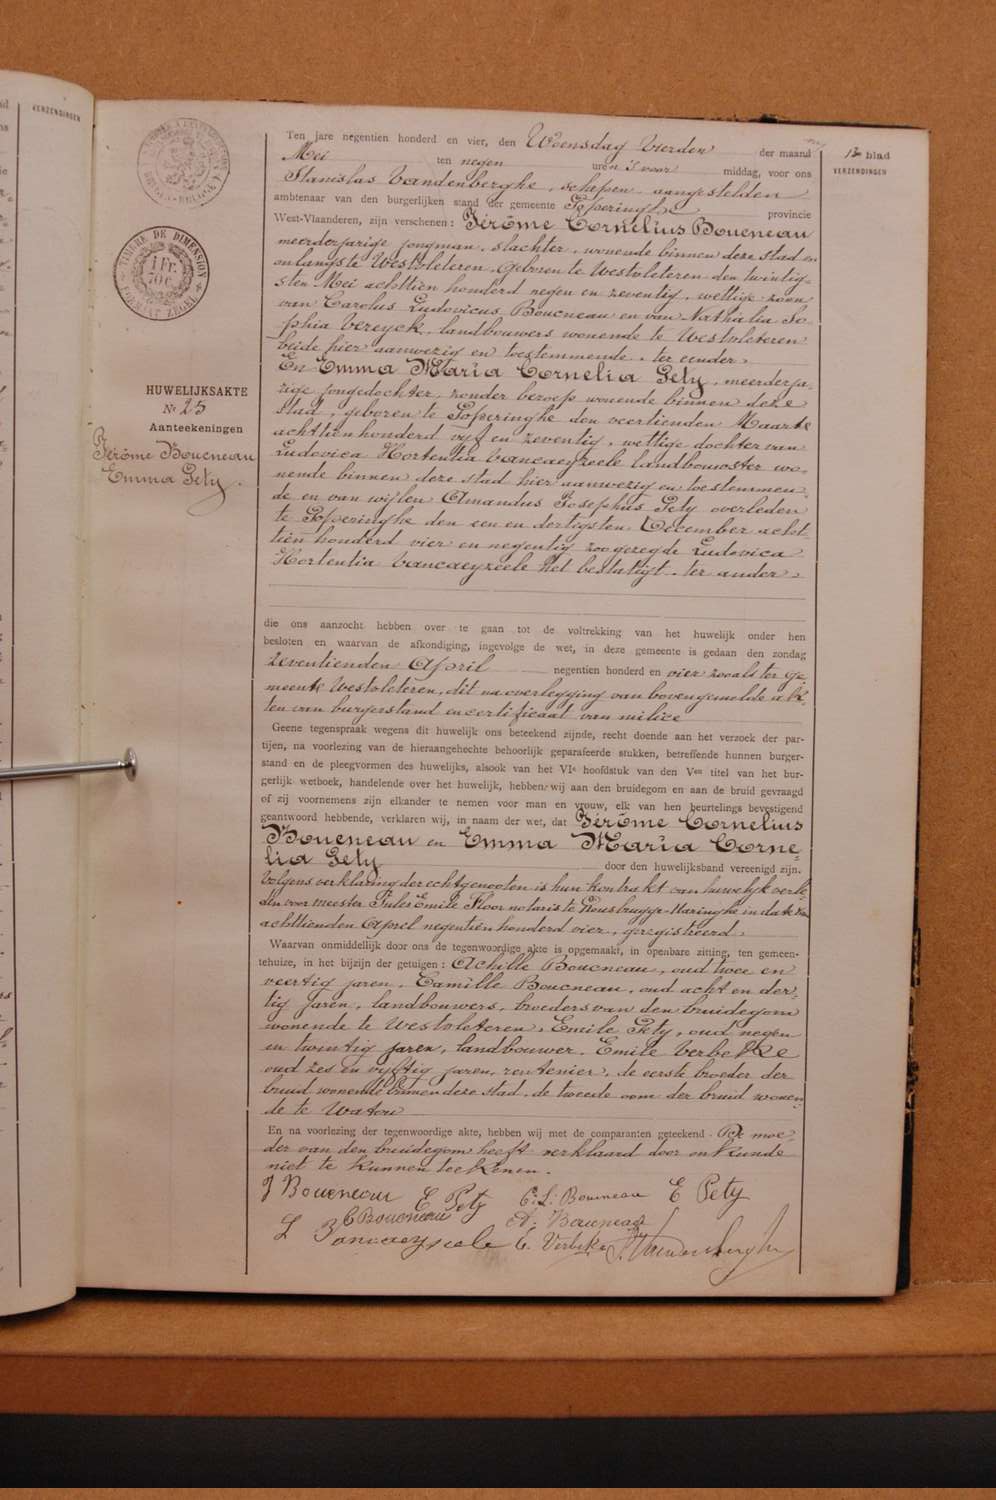 VERZENDINGEN
13e blad
VERZENDINGEN
TIMBRE DE DIMENSION
1 Fr.
FORMAAT ZEGEL
HUWELIJKSAKTE
No 23
Aanteekeningen
Jérôme Boucneau
Emma Pety.
Ten jare negentien honderd en vier, den Woensdag vierden der maand
Mei ten negen uren 's voor middag, voor ons
Stanislas Vandenberghe, schepen aangestelden
ambtenaar van den burgerlijken stand der gemeente Poperinghe provincie
West-Vlaanderen, zijn verschenen : Jérôme Cornelius Boucneau
meerderjarige jongman, slachter, wonende binnen deze stad en
onlangste Westvleteren, geboren te Westvleteren den twintig-
sten Mei achttien honderd negen en zeventig, wettige zoon
van Carolus Ludovicus Boucneau en van Nathalia So-
phia Vereyck, landbouwers wonende te Westvleteren
beide hier aanwezig en toestemmende, ter eender,
En Emma Maria Cornelia Pety, meerderja-
rige jongedochter, zonder beroep wonende binnen deze
stad, geboren te Poperinghe den veertienden Maarte
achttien honderd vijf en zeventig, wettige dochter van
Ludovica Hortentia Vancaeyzeele landbouwster wo-
nende binnen deze stad hier aanwezig en toestemmen-
de en van wijlen Amandus Josephus Pety overleden
te Poperinghe den een en dertigsten December acht-
tien honderd vier en negentig zoo gezegde Ludovica
Hortentia Vancaeyzeele het bestatigt, ter ander,
die ons aanzocht hebben over te gaan tot de voltrekking van het huwelijk onder hen
besloten en waarvan de afkondiging, ingevolge de wet, in deze gemeente is gedaan den zondag
zeventienden April negentien honderd en vier zooals ter ge-
meente Westvleteren, dit na overlegging van bovengemelde ak-
ten van burgerstand en certificaat van milice
Geene tegenspraak wegens dit huwelijk ons beteekend zijnde, recht doende aan het verzoek der par-
tijen, na voorlezing van de hieraangehechte behoorlijk geparafeerde stukken, betreffende hunnen burger-
stand en de pleegvormen des huwelijks, alsook van het VIe hoofdstuk van den Ven titel van het bur-
gerlijk wetboek, handelende over het huwelijk, hebben wij aan den bruidegom en aan de bruid gevraagd
of zij voornemens zijn elkander te nemen voor man en vrouw, elk van hen beurtelings bevestigend
geantwoord hebbende, verklaren wij, in naam der wet, dat Jérôme Cornelius
Boucneau en Emma Maria Corne-
lia Pety door den huwelijksband vereenigd zijn.
Volgens verklaring der echtgenooten is hun kontrakt van huwelijk verle-
den voor meester Jules Emile Floor notaris te Rousbrugge-Haringhe in date van
achttienden April negentien honderd vier, geregistreerd,
Waarvan onmiddellijk door ons de tegenwoordige akte is opgemaakt, in openbare zitting, ten gemeen-
tehuize, in het bijzijn der getuigen : Achille Boucneau, oud twee en
veertig jaren, Camille Boucneau, oud acht en der-
tig jaren, landbouwers, broeders van den bruidegom
wonende te Westvleteren, Emile Pety, oud negen
en twintig jaren, landbouwer, Emile Verbeke
oud zes en vijftig jaren, rentenier, de eerste broeder der
bruid wonende binnen deze stad, de tweede oom der bruid wonen-
de te Watou
En na voorlezing der tegenwoordige akte, hebben wij met de comparanten geteekend. De moe-
der van den bruidegom heeft verklaard door onkunde
niet te kunnen teekenen.
J Boucneau E Pety C. L. Boucneau E Pety
C Boucneau A. Boucneau
L Vancaeyzeele E. Verbeke S. Vandenberghe